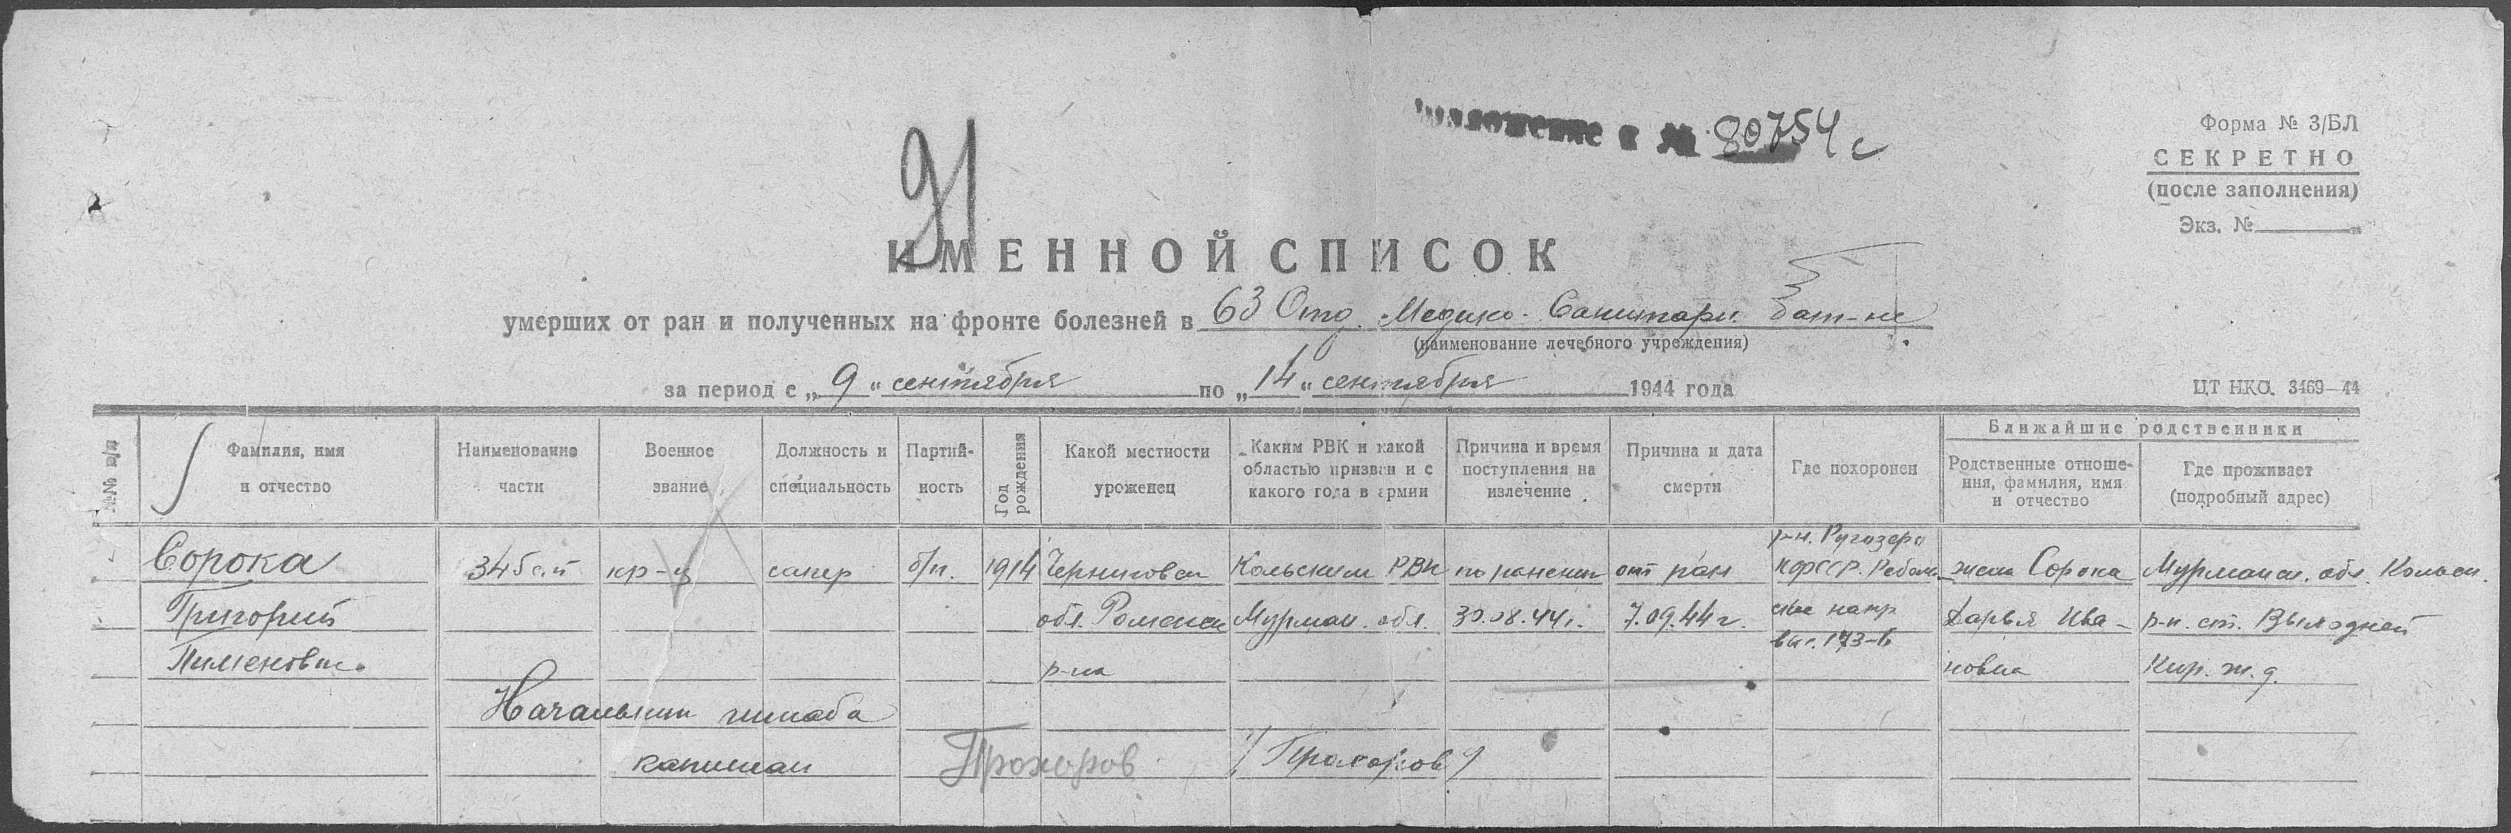 приложение к № 80754 с
91
Форма № 3/БЛ
СЕКРЕТНО
(после заполнения)
Экз. №
ИМЕННОЙ СПИСОК
умерших от ран и полученных на фронте болезней в 63 Отд. Медико-Санитарн. бат-не
(наименование лечебного учреждения)
за период с „9“ сентября по „14“ сентября 1944 года
ЦТ НКО. 3469—44
№№ п/п
Фамилия, имя и отчество
Наименование части
Военное звание
Должность и специальность
Партий-ность
Год рождения
Какой местности уроженец
Каким РВК и какой областью призван и с какого года в армии
Причина и время поступления на излечение
Причина и дата смерти
Где похоронен
Ближайшие родственники
Родственные отноше-ния, фамилия, имя и отчество
Где проживает (подробный адрес)
р-н. Ругозеро
Сорока 34 бат кр-ц сапер б/п. 1914 Черниговск Кольским РВК по ранению от ран КФССР. Реболь- жена Сорока Мурманск. обл. Кольск.
Григорий обл. Роменск Мурман. обл. 30.08.44г. 7.09.44г. ское напр Дарья Ива- р-н. ст. Выходной
Пименович р-на выс. 173-в новна Кир. ж.д.
Начальник штаба
капитан Прохоров / Прохоров /